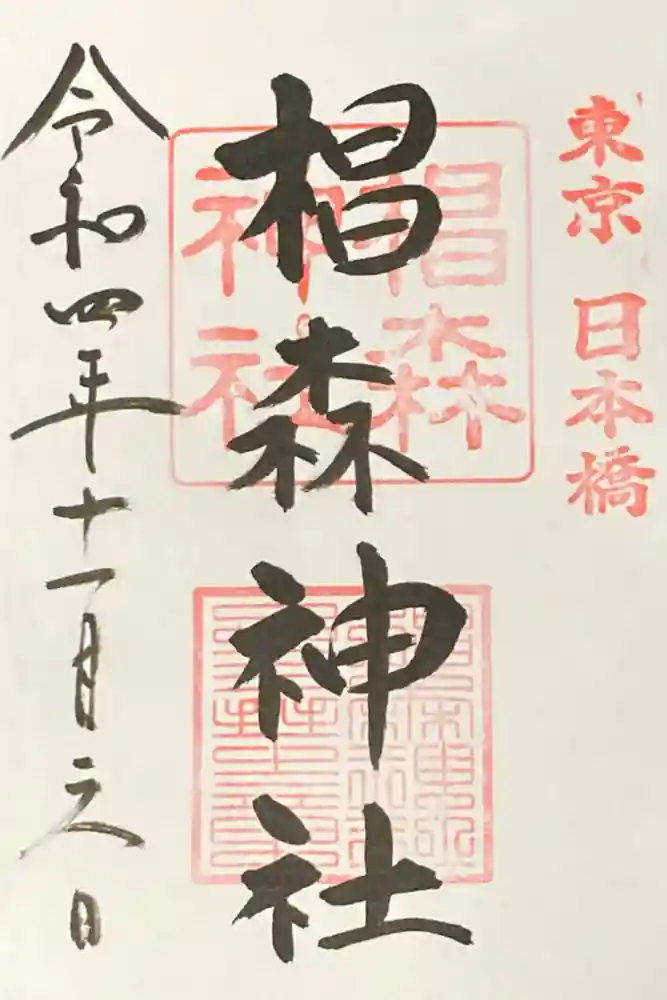 東京 日本橋
椙森神社
椙森
神社
令和四年十一月六日